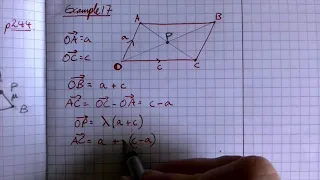 p244
Example 17
A
B
a
P
O
c
C
P
μ
B
OA = a
OC = c
OB = a + c
AC = OC - OA = c - a
OP = λ(a+c)
AC = a + (c-a)